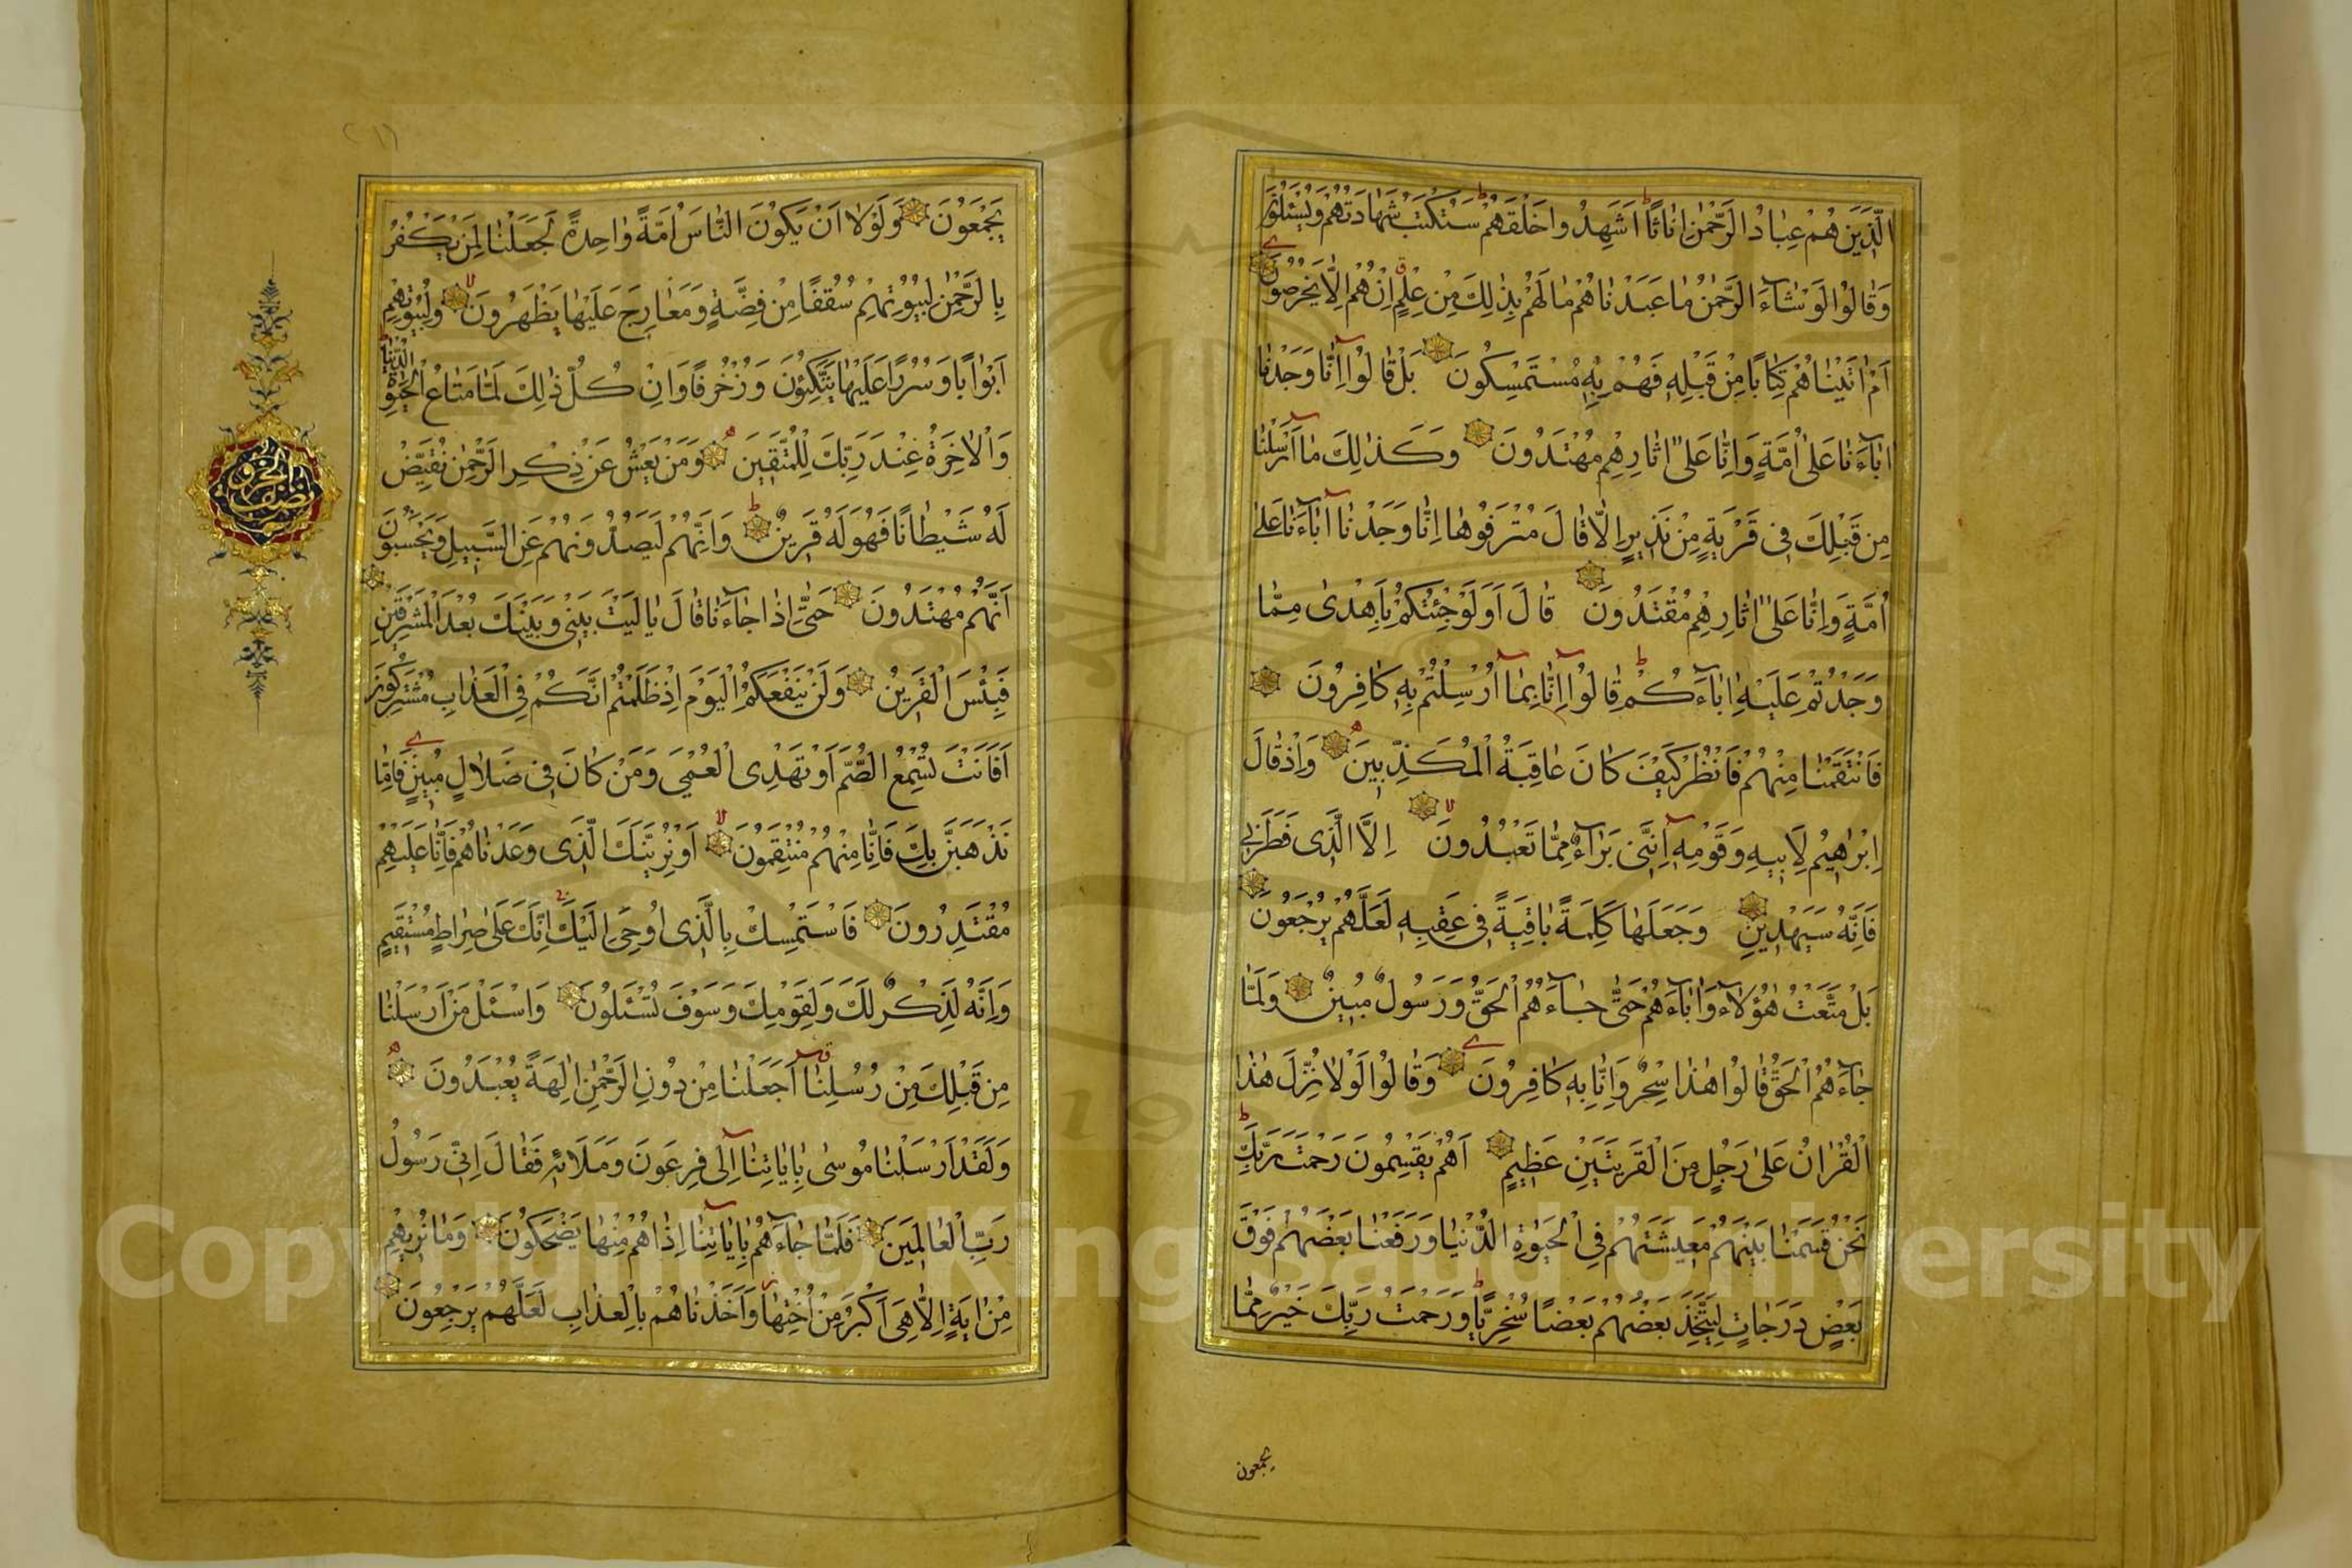 الَّذِينَ هُمْ عِبَادُ الرَّحْمٰنِ اِنَاثًا اَشَهِدُوا خَلْقَهُمْ سَتُكْتَبُ شَهَادَتُهُمْ وَيُسْئَلُونَ
وَقَالُوا لَوْ شَآءَ الرَّحْمٰنُ مَا عَبَدْنَاهُمْ مَا لَهُمْ بِذٰلِكَ مِنْ عِلْمٍ اِنْ هُمْ اِلَّا يَخْرُصُونَ
اَمْ اٰتَيْنَاهُمْ كِتَابًا مِنْ قَبْلِهٖ فَهُمْ بِهٖ مُسْتَمْسِكُونَ بَلْ قَالُوا اِنَّا وَجَدْنَا
اٰبَآءَنَا عَلٰى اُمَّةٍ وَاِنَّا عَلٰى اٰثَارِهِمْ مُهْتَدُونَ وَكَذٰلِكَ مَا اَرْسَلْنَا
مِنْ قَبْلِكَ فِى قَرْيَةٍ مِنْ نَذِيرٍ اِلَّا قَالَ مُتْرَفُوهَا اِنَّا وَجَدْنَا اٰبَآءَنَا عَلٰى
اُمَّةٍ وَاِنَّا عَلٰى اٰثَارِهِمْ مُقْتَدُونَ قَالَ اَوَلَوْ جِئْتُكُمْ بِاَهْدٰى مِمَّا
وَجَدْتُمْ عَلَيْهِ اٰبَآءَكُمْ قَالُوا اِنَّا بِمَا اُرْسِلْتُمْ بِهٖ كَافِرُونَ
فَانْتَقَمْنَا مِنْهُمْ فَانْظُرْ كَيْفَ كَانَ عَاقِبَةُ الْمُكَذِّبِينَ وَاِذْ قَالَ
اِبْرٰهِيمُ لِاَبِيهِ وَقَوْمِهٖ اِنَّنِى بَرَآءٌ مِمَّا تَعْبُدُونَ اِلَّا الَّذِى فَطَرَنِى
فَاِنَّهُ سَيَهْدِينِ وَجَعَلَهَا كَلِمَةً بَاقِيَةً فِى عَقِبِهٖ لَعَلَّهُمْ يَرْجِعُونَ
بَلْ مَتَّعْتُ هٰؤُلَآءِ وَاٰبَآءَهُمْ حَتّٰى جَآءَهُمُ الْحَقُّ وَرَسُولٌ مُبِينٌ وَلَمَّا
جَآءَهُمُ الْحَقُّ قَالُوا هٰذَا سِحْرٌ وَاِنَّا بِهٖ كَافِرُونَ وَقَالُوا لَوْلَا نُزِّلَ هٰذَا
الْقُرْاٰنُ عَلٰى رَجُلٍ مِنَ الْقَرْيَتَيْنِ عَظِيمٍ اَهُمْ يَقْسِمُونَ رَحْمَتَ رَبِّكَ
نَحْنُ قَسَمْنَا بَيْنَهُمْ مَعِيشَتَهُمْ فِى الْحَيٰوةِ الدُّنْيَا وَرَفَعْنَا بَعْضَهُمْ فَوْقَ
بَعْضٍ دَرَجَاتٍ لِيَتَّخِذَ بَعْضُهُمْ بَعْضًا سُخْرِيًّا وَرَحْمَتُ رَبِّكَ خَيْرٌ مِمَّا
يجمعون
يَجْمَعُونَ وَلَوْلَا اَنْ يَكُونَ النَّاسُ اُمَّةً وَاحِدَةً لَجَعَلْنَا لِمَنْ يَكْفُرُ
بِالرَّحْمٰنِ لِبُيُوتِهِمْ سُقُفًا مِنْ فِضَّةٍ وَمَعَارِجَ عَلَيْهَا يَظْهَرُونَ وَلِبُيُوتِهِمْ
اَبْوَابًا وَسُرُرًا عَلَيْهَا يَتَّكِئُونَ وَزُخْرُفًا وَاِنْ كُلُّ ذٰلِكَ لَمَّا مَتَاعُ الْحَيٰوةِ الدُّنْيَا
وَالْاٰخِرَةُ عِنْدَ رَبِّكَ لِلْمُتَّقِينَ وَمَنْ يَعْشُ عَنْ ذِكْرِ الرَّحْمٰنِ نُقَيِّضْ
لَهُ شَيْطَانًا فَهُوَ لَهُ قَرِينٌ وَاِنَّهُمْ لَيَصُدُّونَهُمْ عَنِ السَّبِيلِ وَيَحْسَبُونَ
اَنَّهُمْ مُهْتَدُونَ حَتّٰى اِذَا جَآءَنَا قَالَ يَا لَيْتَ بَيْنِى وَبَيْنَكَ بُعْدَ الْمَشْرِقَيْنِ
فَبِئْسَ الْقَرِينُ وَلَنْ يَنْفَعَكُمُ الْيَوْمَ اِذْ ظَلَمْتُمْ اَنَّكُمْ فِى الْعَذَابِ مُشْتَرِكُونَ
اَفَاَنْتَ تُسْمِعُ الصُّمَّ اَوْ تَهْدِى الْعُمْىَ وَمَنْ كَانَ فِى ضَلَالٍ مُبِينٍ فَاِمَّا
نَذْهَبَنَّ بِكَ فَاِنَّا مِنْهُمْ مُنْتَقِمُونَ اَوْ نُرِيَنَّكَ الَّذِى وَعَدْنَاهُمْ فَاِنَّا عَلَيْهِمْ
مُقْتَدِرُونَ فَاسْتَمْسِكْ بِالَّذِى اُوحِىَ اِلَيْكَ اِنَّكَ عَلٰى صِرَاطٍ مُسْتَقِيمٍ
وَاِنَّهُ لَذِكْرٌ لَكَ وَلِقَوْمِكَ وَسَوْفَ تُسْئَلُونَ وَاسْئَلْ مَنْ اَرْسَلْنَا
مِنْ قَبْلِكَ مِنْ رُسُلِنَا اَجَعَلْنَا مِنْ دُونِ الرَّحْمٰنِ اٰلِهَةً يُعْبَدُونَ
وَلَقَدْ اَرْسَلْنَا مُوسٰى بِاٰيَاتِنَا اِلٰى فِرْعَوْنَ وَمَلَائِهٖ فَقَالَ اِنِّى رَسُولُ
رَبِّ الْعَالَمِينَ فَلَمَّا جَآءَهُمْ بِاٰيَاتِنَا اِذَا هُمْ مِنْهَا يَضْحَكُونَ وَمَا نُرِيهِمْ
مِنْ اٰيَةٍ اِلَّا هِىَ اَكْبَرُ مِنْ اُخْتِهَا وَاَخَذْنَاهُمْ بِالْعَذَابِ لَعَلَّهُمْ يَرْجِعُونَ
Copyright © King Saud University